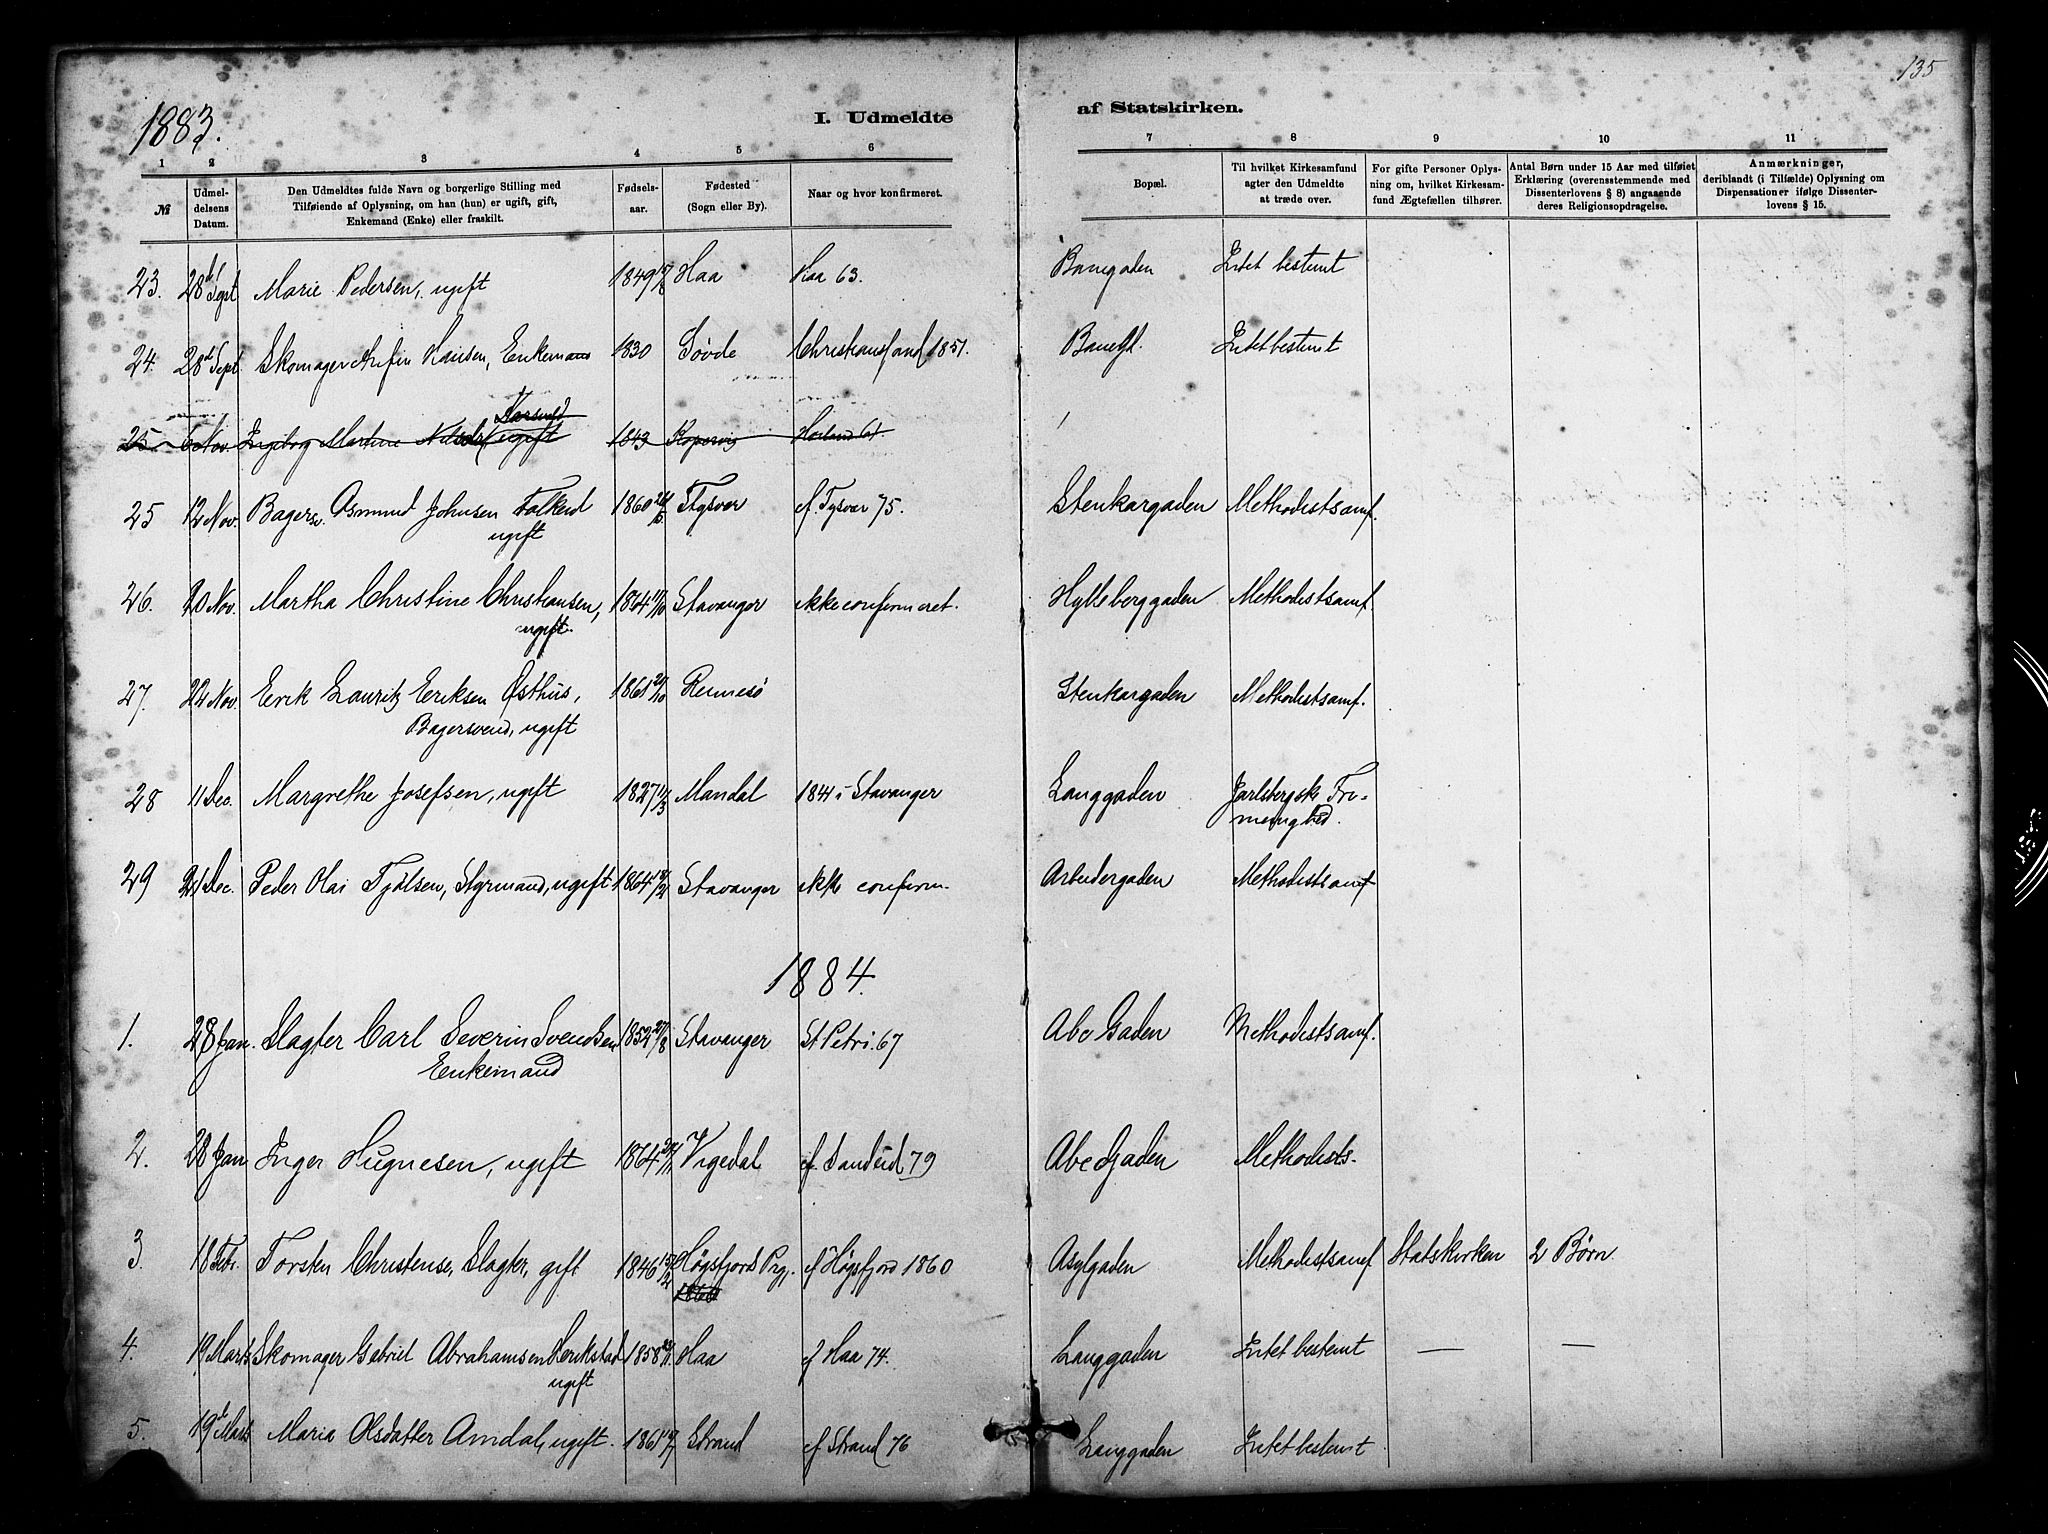 135
1883.
I. Udmeldte af Statskirken.
1 2 3 4 5 6 7 8 9 10 11
№
Udmel-
delsens
Datum.
Den Udmeldtes fulde Navn og borgerlige Stilling med
Tilføiende af Oplysning, om han (hun) er ugift, gift,
Enkemand (Enke) eller fraskilt.
Fødsels-
aar.
Fødested
(Sogn eller By).
Naar og hvor konfirmeret.
Bopæl.
Til hvilket Kirkesamfund
agter den Udmeldte
at træde over.
For gifte Personer Oplys-
ning om, hvilket Kirkesam-
fund Ægtefællen tilhører.
Antal Børn under 15 Aar med tilføiet
Erklæring (overensstemmende med
Dissenterlovens § 8) angaaende
deres Religionsopdragelse.
Anmærkninger,
deriblandt (i Tilfælde) Oplysning om
Dispensationer ifølge Dissenter-
lovens § 15.
23. 28de Sept Marie Pedersen, ugift 1849 Haa Haa 63. Banegaden Intet bestemt
24. 28de Sept Skomager Hansen, Enkemand 1830 Christiansand 1851. Intet bestemt
25 6 Nov. Ingeborg Martine ugift 1843 Kopervig
25 12 Nov. Bagersv. Asmund Johnsen 1860 Tysvær cf. Tysvær 75. Stenkargaden Methodistsamf.
ugift
26. 20 Nov. Martha Christine Christiansen, 1864 Stavanger ikke confirmeret. Hylleberggaden Methodistsamf.
ugift.
27. 22 Nov. Eerik Lauritz Eeriksen Østhus, 1861 Rennesø Stenkargaden Methodistsamf.
Bagersvend, ugift
28 11 Dec. Margrethe Josefsen, ugift 1827 11/3 Mandal 1841 i Stavanger Langgaden Jarlsbergske Fri-
menighed.
29 21 Dec. Peder Olai Tjølsen, Styrmand, ugift 1864 Stavanger ikke confirm. Arbeidergaden Methodistsamf
1884.
1. 28 Jan. Slagter Carl Severin Svendsen 1852 27/8 Stavanger St Petri. 67 Abc Gaden Methodistsamf.
Enkemand
2. 28 Jan Inger Hugnesen, ugift 1864 Vigedal cf. Sandeid 79 Abc Gaden Methodists.
3. 18 Febr. Torsten Christense, Slagter, gift 1846 Høgsfjords Prg. cf Høgsfjord 1860 Asylgaden Methodistsamf Statskirken 2 Børn.
1860
4. 19 Marts Skomager Gabriel Abrahamsen Herikstad 1858 Haa cf Haa 74. Langgaden Intet bestemt — —
ugift
5. 19de Marts Maria Olsdatter Amdal, ugift. 1861 Strand cf Strand 76 Langgaden Intet bestemt